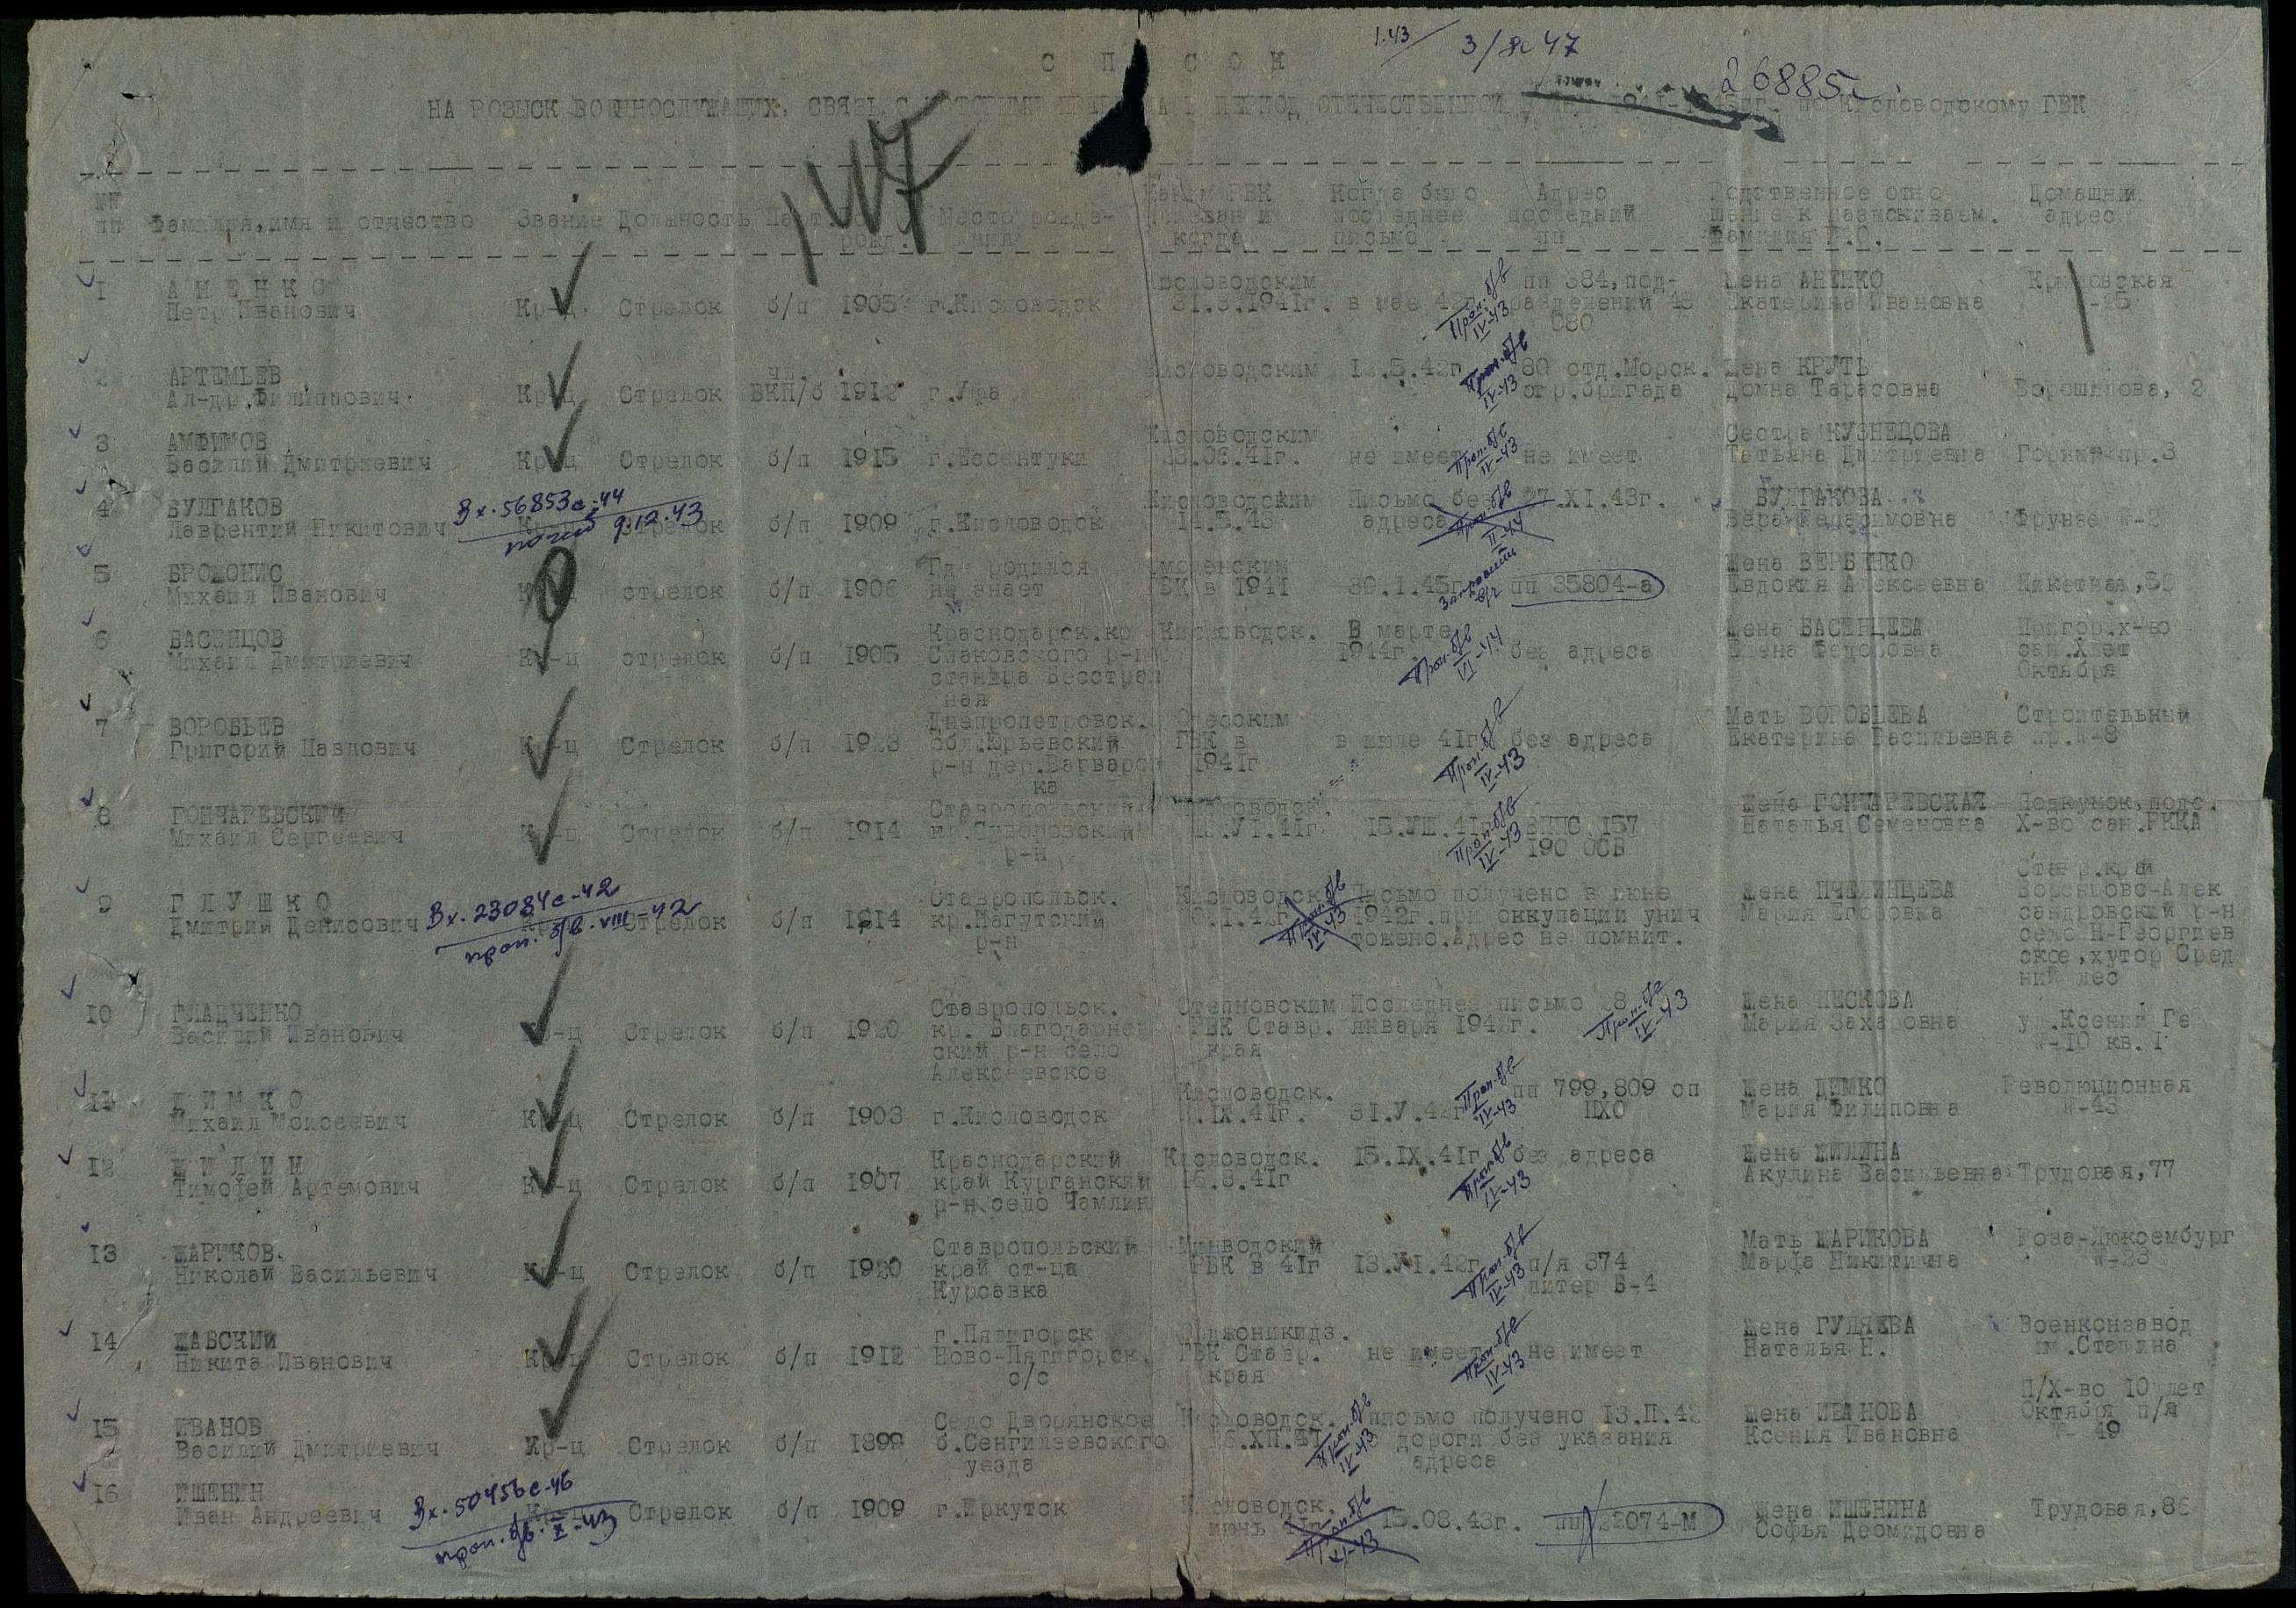 1.43 3/IX 47
26885с.
С П И С О К
НА РОЗЫСК ВОЕННОСЛУЖАЩИХ, СВЯЗЬ С КОТОРЫМИ В ПЕРИОД ОТЕЧЕСТВЕННОЙ по Кисловодскому ГВК
№№ пп Фамилия, имя и отчество Звание Должность Парт. рожд. Место рожде-ния Каким РВК призван и когда Когда было последнее письмо Адрес последний пп Родственное отно-шение к разыскиваем. Фамилия И.О. Домашний адрес
1 А Н Е Н К О Петр Иванович Кр-ц Стрелок б/п 1905 г.Кисловодск Кисловодским 31.8.1941г. в мае 42г. пп 384, под-разделений 43 080 Жена АНЕНКО Екатерина Ивановна -25
Проп. б/в IV-43
2 АРТЕМЬЕВ Ал-др.Филиппович. Кр-ц Стрелок чл. ВКП/б 1912 г.Уфа Кисловодским 12.5.42г. 80 отд.Морск. стр.бригада Жена КРУТЬ Домна Тарасовна Ворошилова, 2
Проп. б/в IV-43
3 АМФИМОВ Василий Дмитриевич Кр-ц Стрелок б/п 1915 г.Ессентуки Кисловодским 23.06.41г. не имеет не имеет Сестра КУЗНЕЦОВА Татьяна Дмитриевна Горький пр.3
Проп. б/в IV-43
4 БУЛГАКОВ Лаврентий Никитович Кр-ц Стрелок б/п 1909 г.Кисловодск Кисловодским 14.3.43 Письмо без адреса 27.XI.43г. БУЛГАКОВА Вера Герасимовна Фрунзе №-2
Вх. 56853с-44 погиб 9.12.43
Проп. б/в II-44
5 БРОДОНИС Михаил Иванович Кр-ц стрелок б/п 1906 Где родился не знает Смоленским ГВК в 1941 30.1.45г. пп 35804-а Жена ВЕРБЕНКО Евдокия Алексеевна Пикетная, 56
Запросить в/ч
6 БАСЕНЦОВ Михаил Дмитриевич Кр-ц стрелок б/п 1905 Краснодарск.кр Спаковского р-на станица Бесстраш ная Кисловодск. В марте 1944г. без адреса Жена БАСЕНЦЕВА Елена Федоровна Пригор.х-во сан.Хлет Октября
Проп. б/в VI-44
7 ВОРОБЬЕВ Григорий Павлович Кр-ц Стрелок б/п 1923 Днепропетровск. обл.Юрьевский р-н дер.Варваров ка Одесским ГВК в 1941г в июле 41г. без адреса Мать ВОРОБЬЕВА Екатерина Васильевна Строительный пр.№-8
Проп. б/в IV-43
8 ГОНЧАРЕВСКИЙ Михаил Сергеевич Кр-ц Стрелок б/п 1914 Ставропольский кр. р-н Кисловодск. 13.VI.41г. 15.УШ.41г. ВППС 157 190 ОСБ Жена ГОНЧАРЕВСКАЯ Наталья Семеновна Подкумок, подс. Х-во сан.РККА
Проп. б/в IV-43
9 Г Л У Ш К О Дмитрий Денисович Кр-ц Стрелок б/п 1914 Ставропольск. кр.Нагутский р-н Кисловодск. .1.42г. Письмо получено в июне 1942г.при оккупации унич тожено.Адрес не помнит. Жена ПЧЕЛИНЦЕВА Мария Егоровна Ставр.край Воронцово-Алек сандровский р-н село Н-Георгиев ское, хутор Сред ний лес
Вх. 23084с-42 проп. б/в. VIII-42
Проп. б/в IV-43
10 ГЛАДЧЕНКО Василий Иванович Кр-ц Стрелок б/п 1920 Ставропольск. кр. Благодарнен ский р-н село Алексеевское Степновским РВК Ставр. края Последнее письмо 28 января 1942г. Жена ПЕСКОВА Мария Захаровна ул.Ксении Ге №-10 кв. 1
Проп. б/в IV-43
11 Д И М К О Михаил Моисеевич Кр-ц Стрелок б/п 1903 г.Кисловодск Кисловодск. .IX.41г. 31.У.42г пп 799,809 сп ПХО Жена ДИМКО Мария Филиповна Революционная №-43
Проп. б/в IV-43
12 Ж И Л И Н Тимофей Артемович Кр-ц Стрелок б/п 1907 Краснодарский край Курганский р-н село Чамлин Кисловодск. 16.8.41г 15.IX.41г. без адреса Жена ЖИЛИНА Акулина Васильевна Трудовая,77
Проп. б/в IV-43
13 ЖАРИКОВ Николай Васильевич Кр-ц Стрелок б/п 1920 Ставропольский край ст-ца Курсавка Минводский РВК в 41г 13.УI.42г п/я 374 литер Б-4 Мать ЖАРИКОВА Марфа Никитична Роза-Люксембург №-23
Проп. б/в IV-43
14 ЖАБСКИЙ Никита Иванович Кр-ц Стрелок б/п 1912 г.Пятигорск Ново-Пятигорск. с/с Орджоникидз. ГВК Ставр. края не имеет не имеет Жена ГУЛЯЕВА Наталья Н. Военконзавод им.Сталина
Проп. б/в IV-43
15 ИВАНОВ Василий Дмитриевич Кр-ц Стрелок б/п 1899 Село Дворянское б.Сенгилеевского уезда Кисловодск. 26.ХП.41 письмо получено 13.П.42 с дороги без указания адреса Жена ИВАНОВА Ксения Ивановна П/Х-во 10 лет Октября п/я №- 49
Проп. б/в IV-43
16 ИШЕНИН Иван Андреевич Кр-ц Стрелок б/п 1909 г.Иркутск Кисловодск. июнь 41г. 15.08.43г. пп 22074-М Жена ИШЕНИНА Софья Деомидовна Трудовая,86
Вх. 50456с-46 проп. б/в. X-43
Проп. б/в XI-43